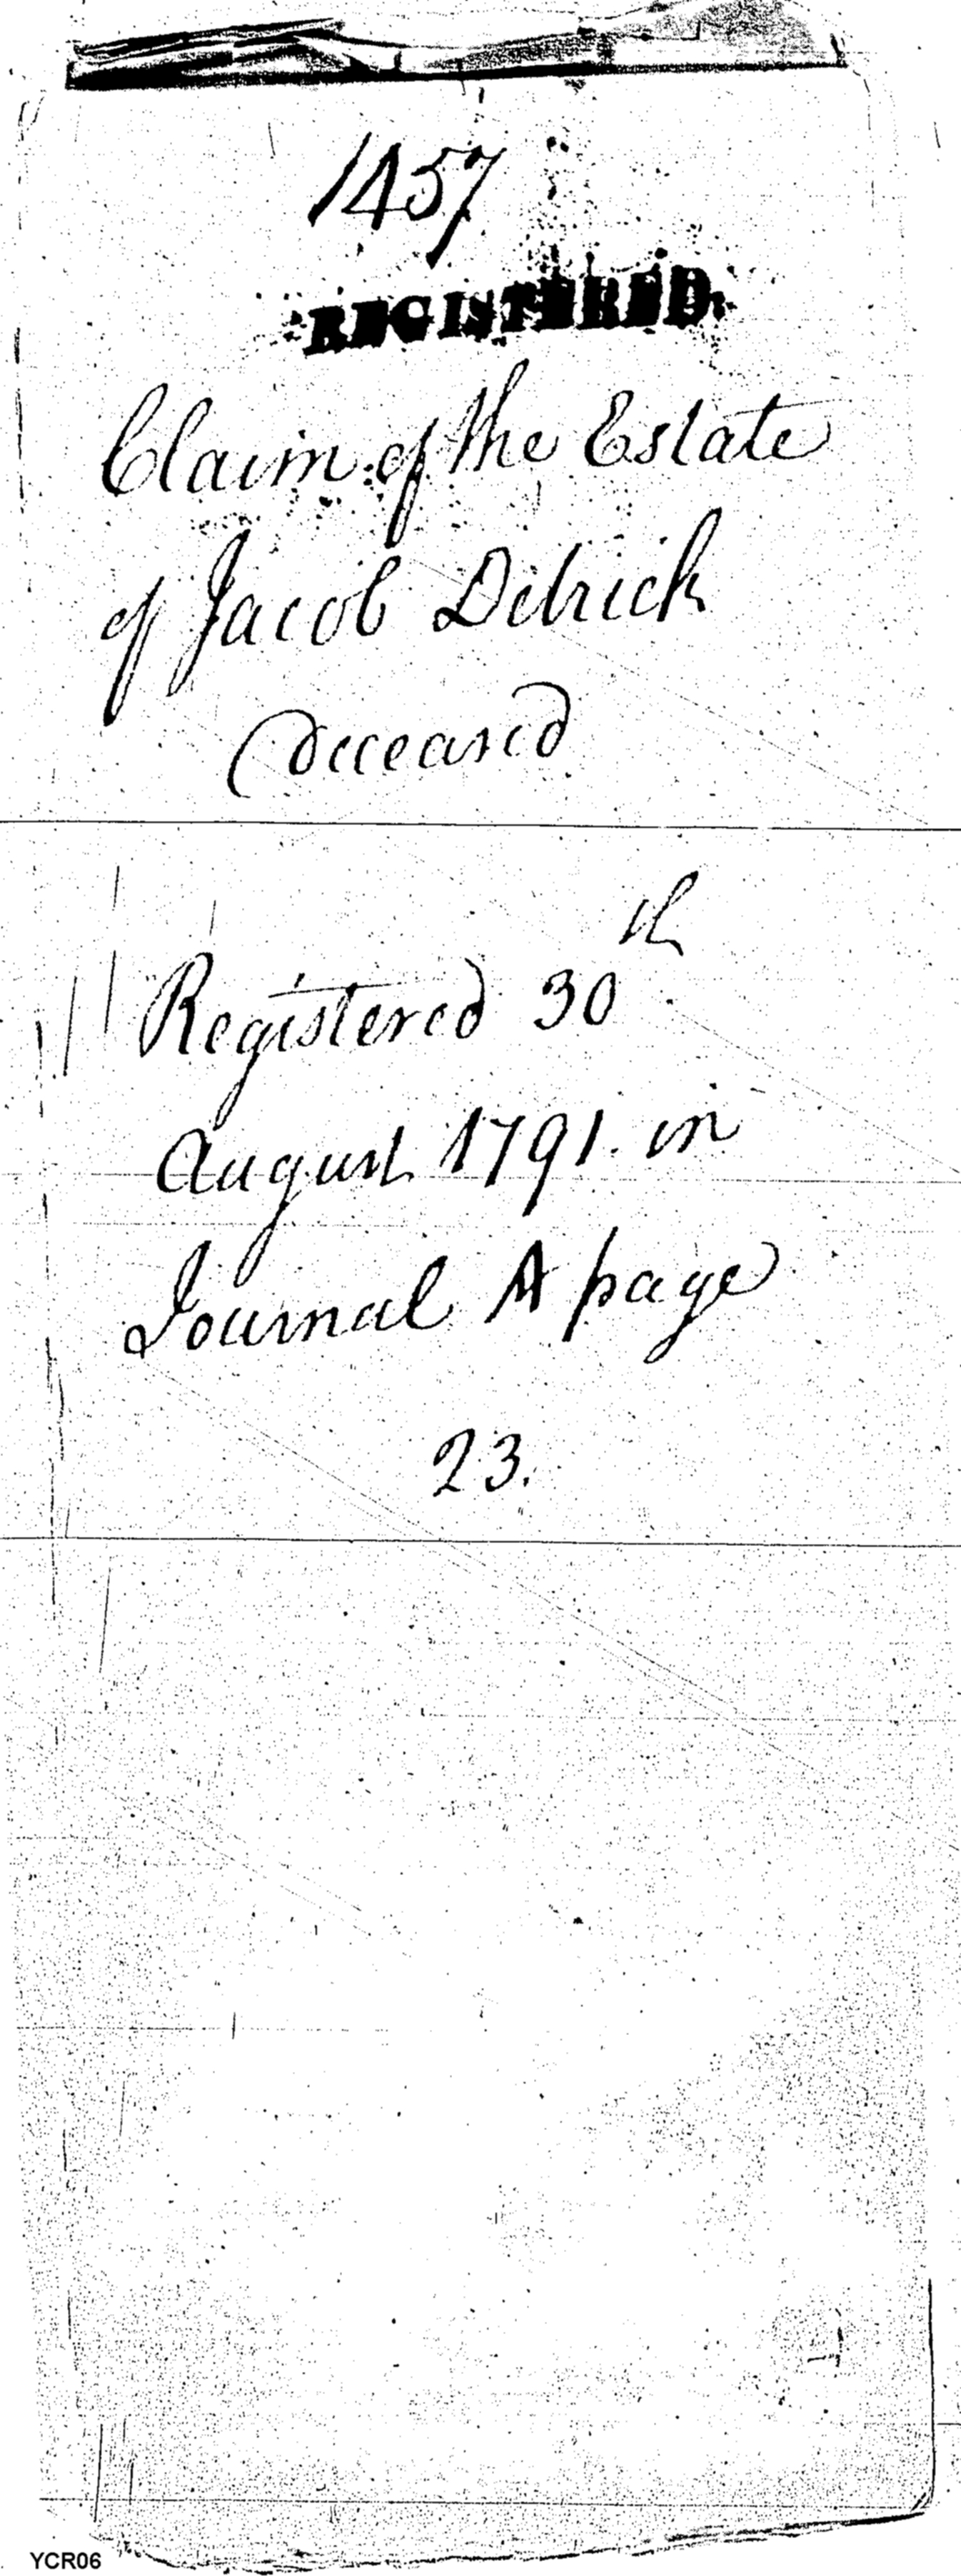 1457
REGISTERED.
Claim of the Estate
of Jacob Detrick
deceased
Registered 30th
August 1791. in
Journal A page
23.
YCR06